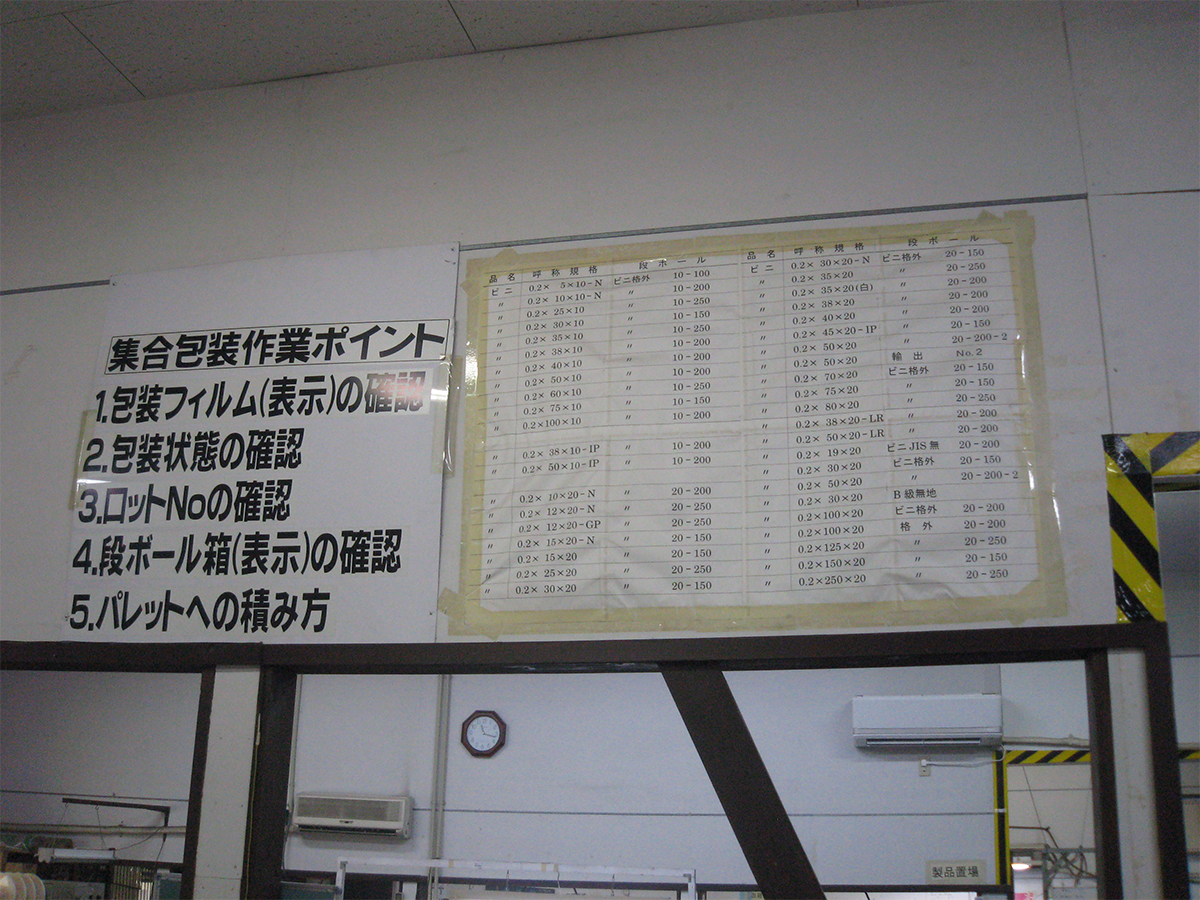 集合包装作業ポイント
1.包装フィルム(表示)の確認
2.包装状態の確認
3.ロットNoの確認
4.段ボール箱(表示)の確認
5.パレットへの積み方
品名 呼称規格 段ボール
ビニ 0.2× 5×10-N ビニ格外 10-100
〃 0.2× 10×10-N 〃 10-200
〃 0.2× 25×10 〃 10-250
〃 0.2× 30×10 〃 10-150
〃 0.2× 35×10 〃 10-250
〃 0.2× 38×10 〃 10-200
〃 0.2× 40×10 〃 10-200
〃 0.2× 50×10 〃 10-200
〃 0.2× 60×10 〃 10-250
〃 0.2× 75×10 〃 10-150
〃 0.2×100×10 〃 10-200
〃 0.2× 38×10-IP 〃 10-200
〃 0.2× 50×10-IP 〃 10-200
〃 0.2× 10×20-N 〃 20-200
〃 0.2× 12×20-N 〃 20-250
〃 0.2× 12×20-GP 〃 20-250
〃 0.2× 15×20-N 〃 20-150
〃 0.2× 15×20 〃 20-150
〃 0.2× 25×20 〃 20-250
〃 0.2× 30×20 〃 20-150
品名 呼称規格 段ボール
ビニ 0.2× 30×20-N ビニ格外 20-150
〃 0.2× 35×20 〃 20-250
〃 0.2× 35×20(白) 〃 20-200
〃 0.2× 38×20 〃 20-200
〃 0.2× 40×20 〃 20-200
〃 0.2× 45×20-IP 〃 20-150
〃 0.2× 50×20 〃 20-200-2
〃 0.2× 50×20 輸出 No.2
〃 0.2× 70×20 ビニ格外 20-150
〃 0.2× 75×20 〃 20-150
〃 0.2× 80×20 〃 20-250
〃 0.2× 38×20-LR 〃 20-200
〃 0.2× 50×20-LR 〃 20-200
〃 0.2× 19×20 ビニJIS無 20-200
〃 0.2× 30×20 ビニ格外 20-150
〃 0.2× 50×20 〃 20-200-2
〃 0.2× 30×20 B級無地
〃 0.2×100×20 ビニ格外 20-200
〃 0.2×100×20 格外 20-200
〃 0.2×125×20 〃 20-250
〃 0.2×150×20 〃 20-150
〃 0.2×250×20 〃 20-250
製品置場